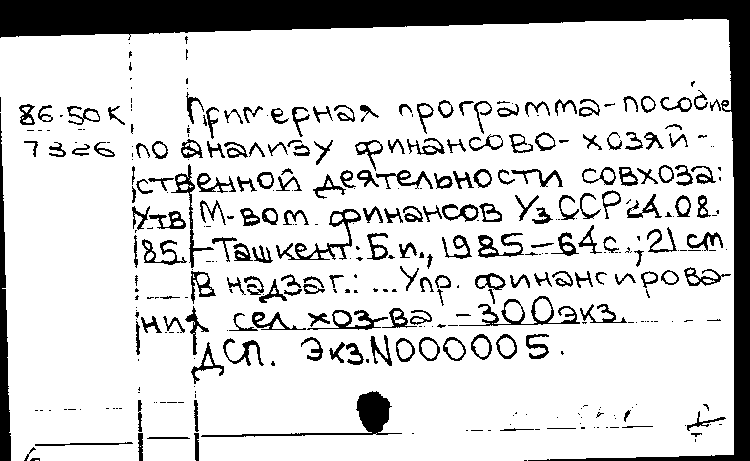 86-50К Примерная программа-пособие
7326 по анализу финансово-хозяй-
ственной деятельности совхоза:
Утв М-вом финансов УзССР 24.08.
85.-Ташкент: Б.и., 1985-64с.; 21 см
В надзаг.: ...Упр. финансирова-
ния сел. хоз-ва. -300экз.
ДСП. Экз.N000005.